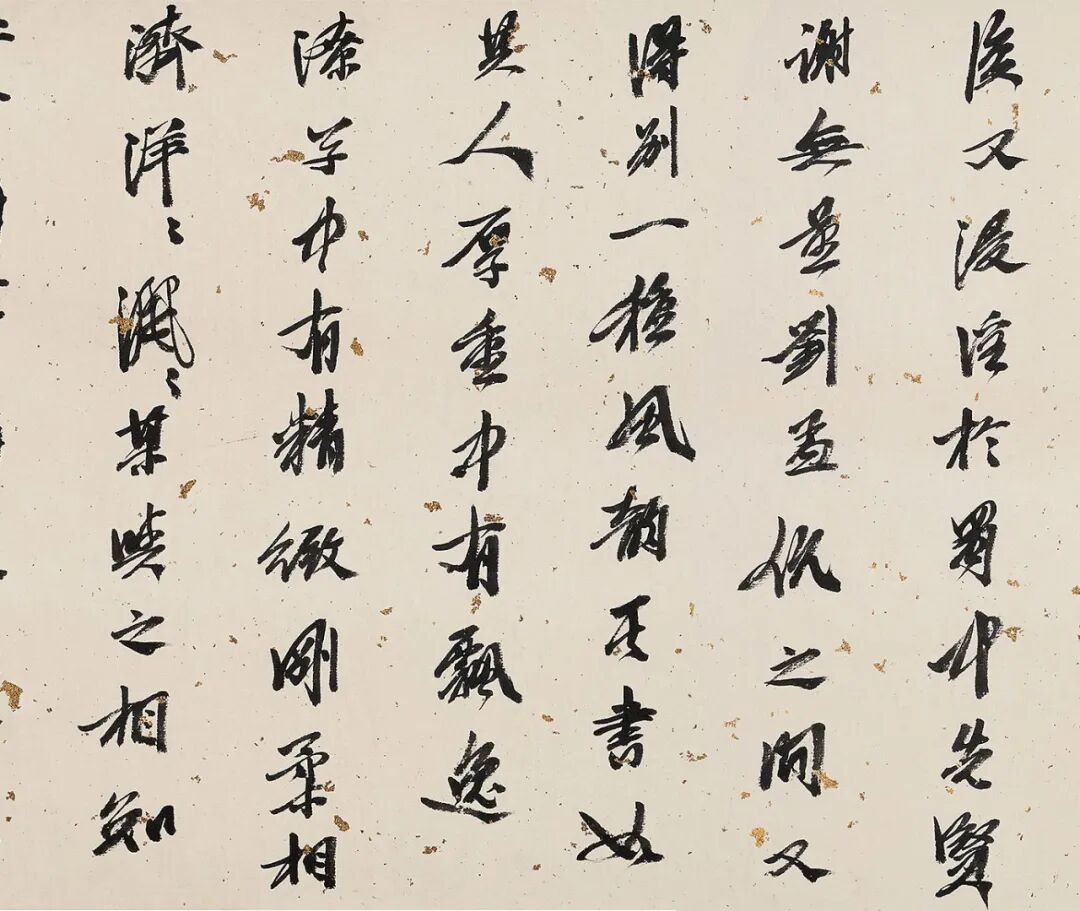 後又浸淫於蜀中先賢
謝無量劉孟伉之間又
得別一種風韵其書如
其人厚重中有飄逸
潦草中有精緻剛柔相
濟洋〻灑〻某與之相知